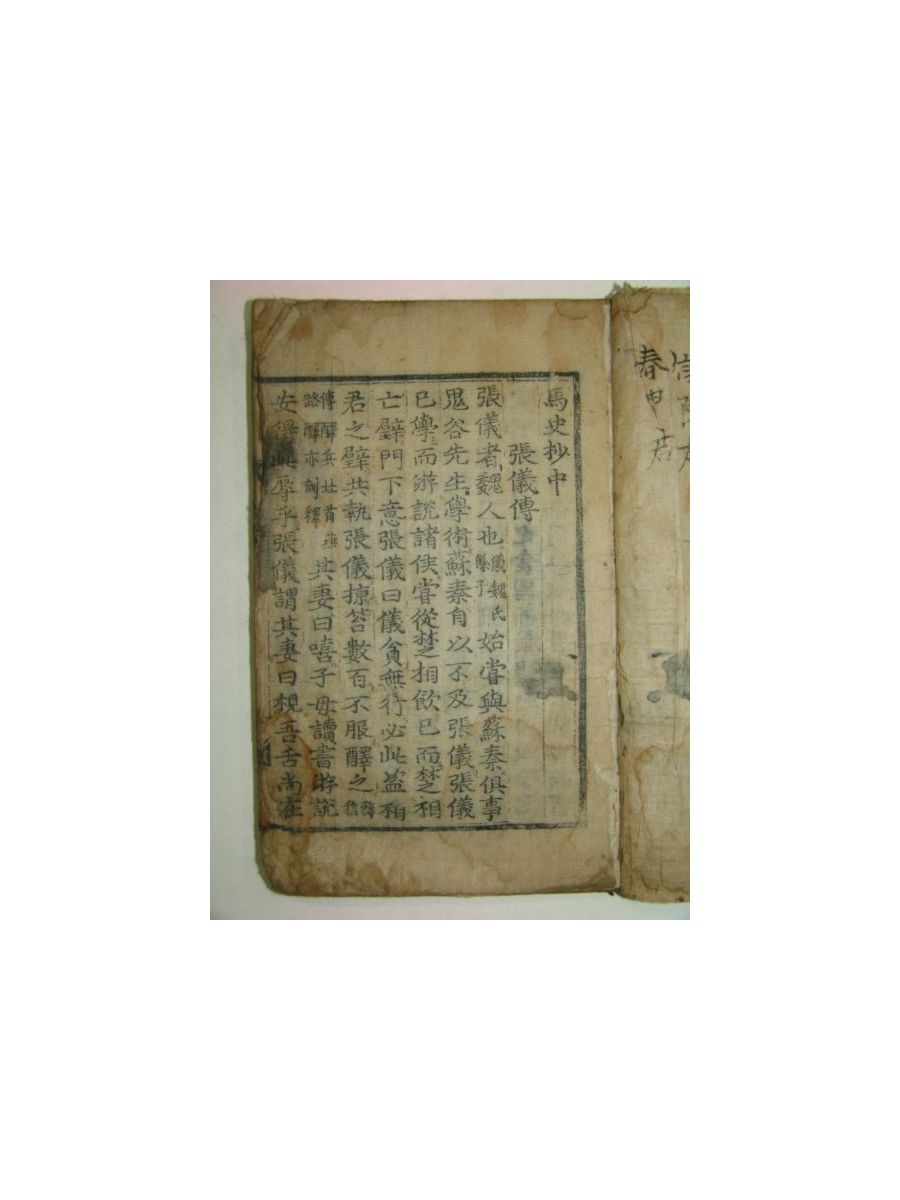 春申君
馬史抄中
張儀傳
張儀者魏人也儀魏氏餘子始嘗與蘇秦俱事
鬼谷先生學術蘇秦自以不及張儀張儀
已學而游說諸侯嘗從楚相飮已而楚相
亡璧門下意張儀曰儀貧無行必此盜相
君之璧共執張儀掠笞數百不服醳之韓信
傳醳兵北首燕路醳亦訓釋其妻曰嘻子毋讀書游說
安得此辱乎張儀謂其妻曰視吾舌尚在